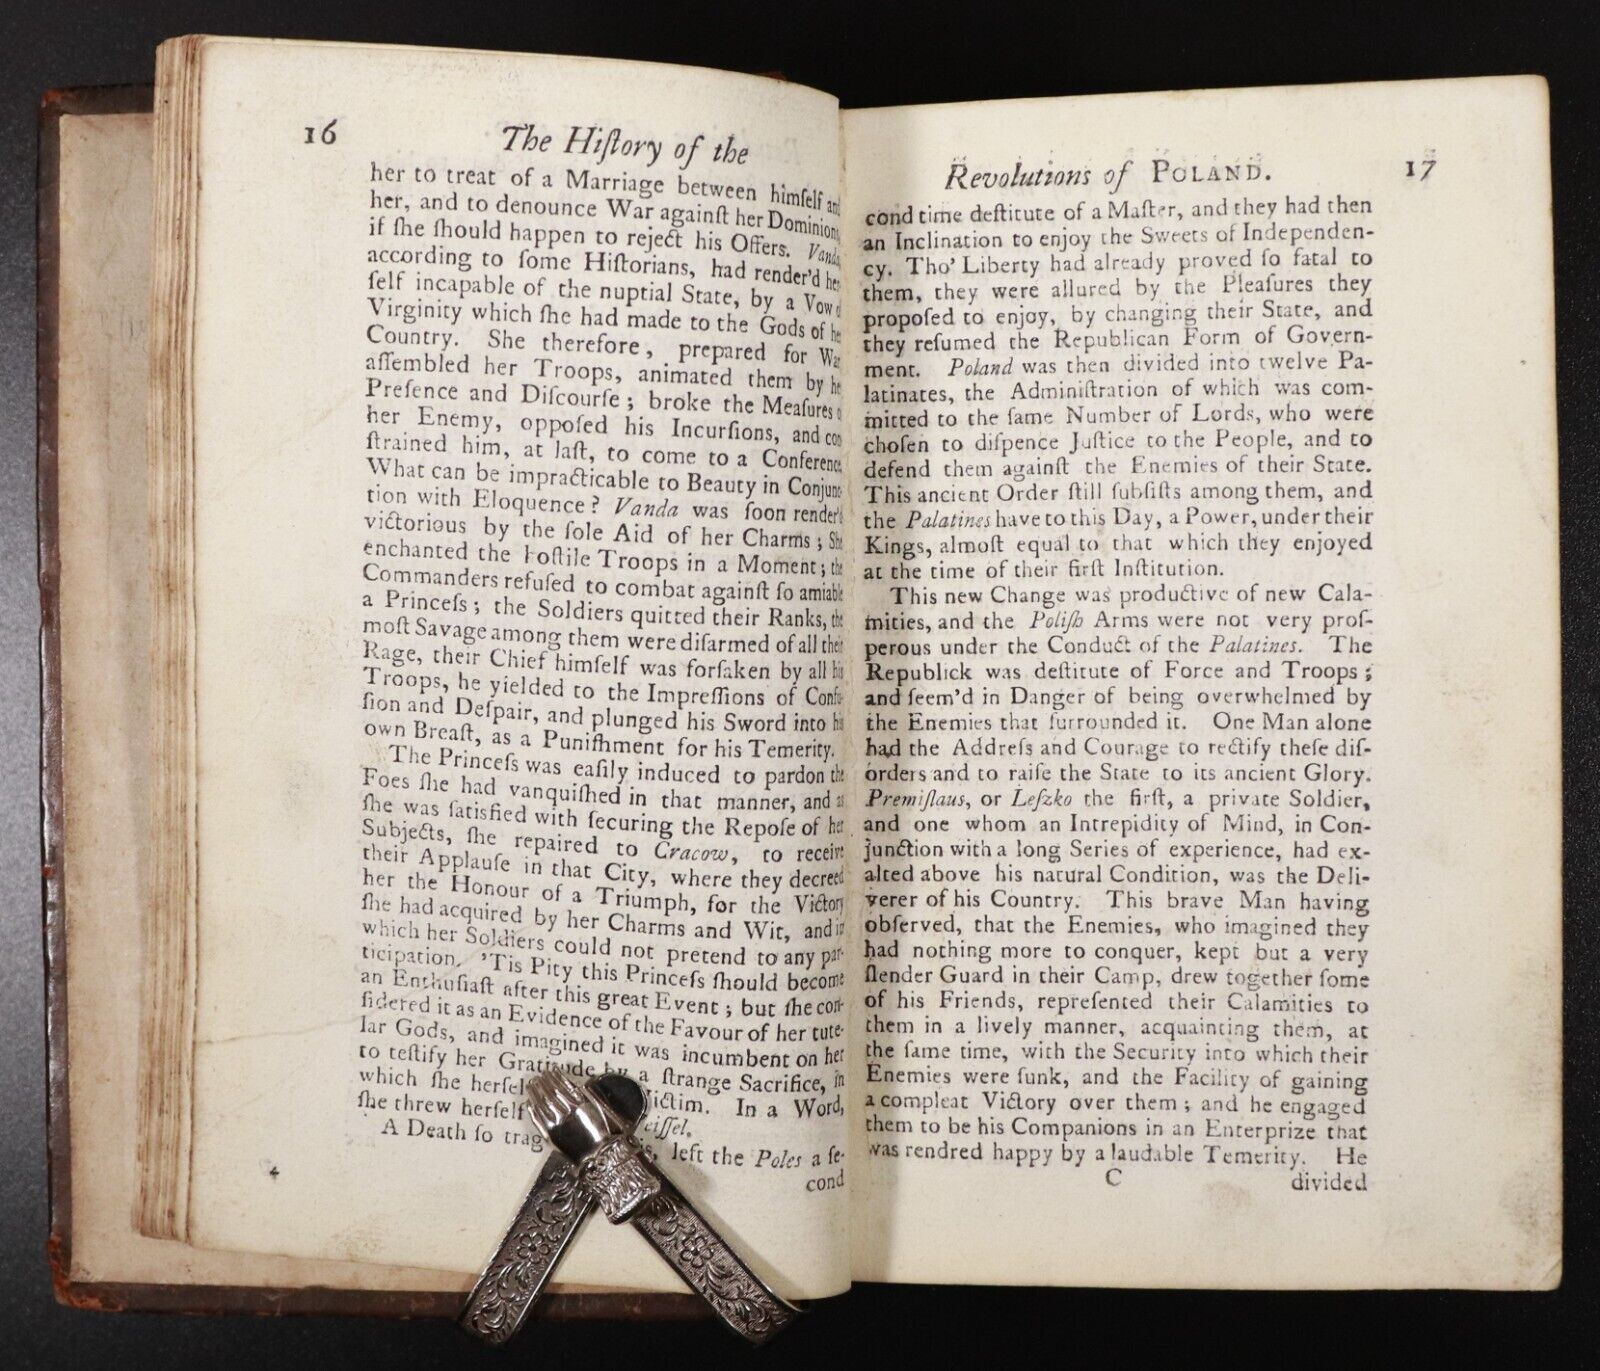 16
The Hiſtory of the
her to treat of a Marriage between himſelf and
her, and to denounce War againſt her Dominions,
if ſhe ſhould happen to reject his Offers. Vanda,
according to ſome Hiſtorians, had render'd her
ſelf incapable of the nuptial State, by a Vow of
Virginity which ſhe had made to the Gods of her
Country. She therefore, prepared for War,
aſſembled her Troops, animated them by her
Preſence and Diſcourſe; broke the Meaſures o
her Enemy, oppoſed his Incurſions, and con
ſtrained him, at laſt, to come to a Conference,
What can be impracticable to Beauty in Conjunc
tion with Eloquence? Vanda was ſoon render'd
victorious by the ſole Aid of her Charms; She
enchanted the hoſtile Troops in a Moment; the
Commanders refuſed to combat againſt ſo amiable
a Princeſs; the Soldiers quitted their Ranks, the
moſt Savage among them were diſarmed of all their
Rage, their Chief himſelf was forſaken by all his
Troops, he yielded to the Impreſſions of Confu-
ſion and Deſpair, and plunged his Sword into his
own Breaſt, as a Puniſhment for his Temerity.
The Princeſs was eaſily induced to pardon the
Foes ſhe had vanquiſhed in that manner, and as
ſhe was ſatisfied with ſecuring the Repoſe of her
Subjects, ſhe repaired to Cracow, to receive
their Applauſe in that City, where they decreed
her the Honour of a Triumph, for the Victory
ſhe had acquired by her Charms and Wit, and in
which her Soldiers could not pretend to any par-
ticipation. 'Tis Pity this Princeſs ſhould become
an Enthuſiaſt after this great Event; but ſhe con-
ſidered it as an Evidence of the Favour of her tute-
lar Gods, and imagined it was incumbent on her
to teſtify her Gratitude by a ſtrange Sacrifice, in
which ſhe herſel ictim. In a Word,
ſhe threw herſelf ciſſel.
A Death ſo trag is, left the Poles a ſe-
4
cond
Revolutions of POLAND.
17
cond time deſtitute of a Maſter, and they had then
an Inclination to enjoy the Sweets of Independen-
cy. Tho' Liberty had already proved ſo fatal to
them, they were allured by the Pleaſures they
propoſed to enjoy, by changing their State, and
they reſumed the Republican Form of Govern-
ment. Poland was then divided into twelve Pa-
latinates, the Adminiſtration of which was com-
mitted to the ſame Number of Lords, who were
choſen to diſpence Juſtice to the People, and to
defend them againſt the Enemies of their State.
This ancient Order ſtill ſubſiſts among them, and
the Palatines have to this Day, a Power, under their
Kings, almoſt equal to that which they enjoyed
at the time of their firſt Inſtitution.
This new Change was productive of new Cala-
mities, and the Poliſh Arms were not very proſ-
perous under the Conduct of the Palatines. The
Republick was deſtitute of Force and Troops;
and ſeem'd in Danger of being overwhelmed by
the Enemies that ſurrounded it. One Man alone
had the Addreſs and Courage to rectify theſe diſ-
orders and to raiſe the State to its ancient Glory.
Premiſlaus, or Leſzko the firſt, a private Soldier,
and one whom an Intrepidity of Mind, in Con-
junction with a long Series of experience, had ex-
alted above his natural Condition, was the Deli-
verer of his Country. This brave Man having
obſerved, that the Enemies, who imagined they
had nothing more to conquer, kept but a very
ſlender Guard in their Camp, drew together ſome
of his Friends, repreſented their Calamities to
them in a lively manner, acquainting them, at
the ſame time, with the Security into which their
Enemies were ſunk, and the Facility of gaining
a compleat Victory over them; and he engaged
them to be his Companions in an Enterprize that
was rendred happy by a laudable Temerity. He
C
divided